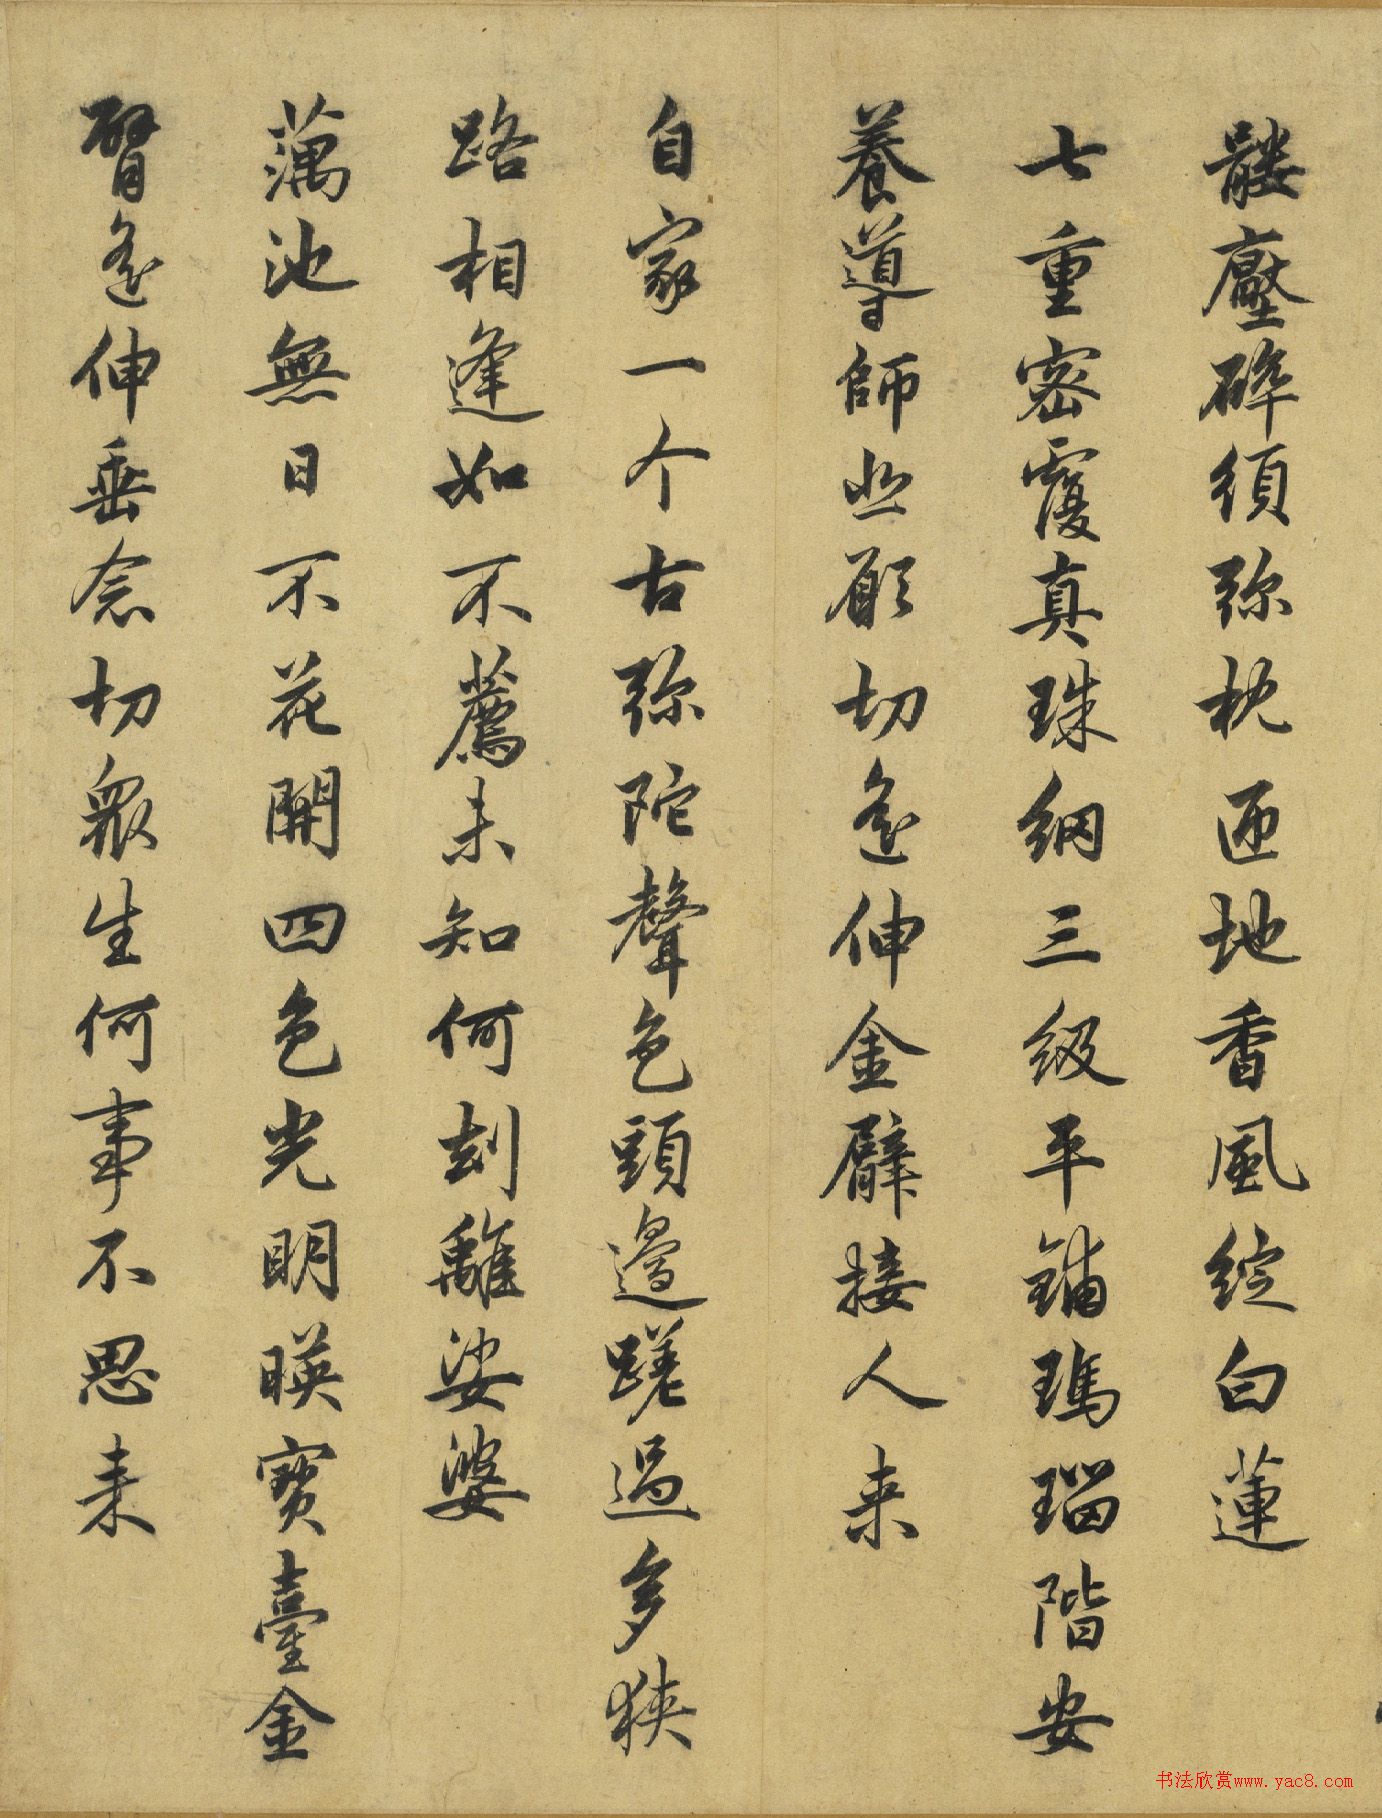 髏壓碎須弥枕匝地香風綻白蓮
七重密覆真珠網三級平鋪瑪瑙階安
養導師悲願切遙伸金臂接人来
自家一个古弥陀聲色頭邊蹉過多狹
路相逢如不薦未知何刻離娑婆
藕池無日不花開四色光明暎寶臺金
臂遙伸垂念切衆生何事不思来
书法欣赏www.yac8.com